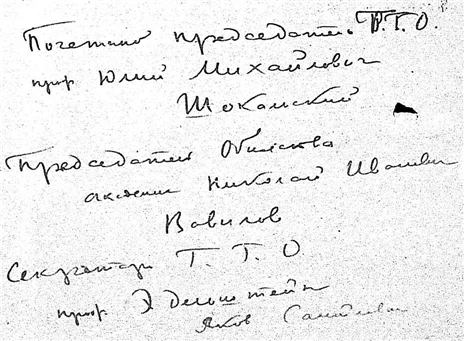 Почетный председатель В.Г.О.
проф Юлий Михайлович
Шокальский
Председатель Общества
академик Николай Иванович
Вавилов
Секретарь Г. Г. О
проф. Эдельштейн
Яков Самойлович